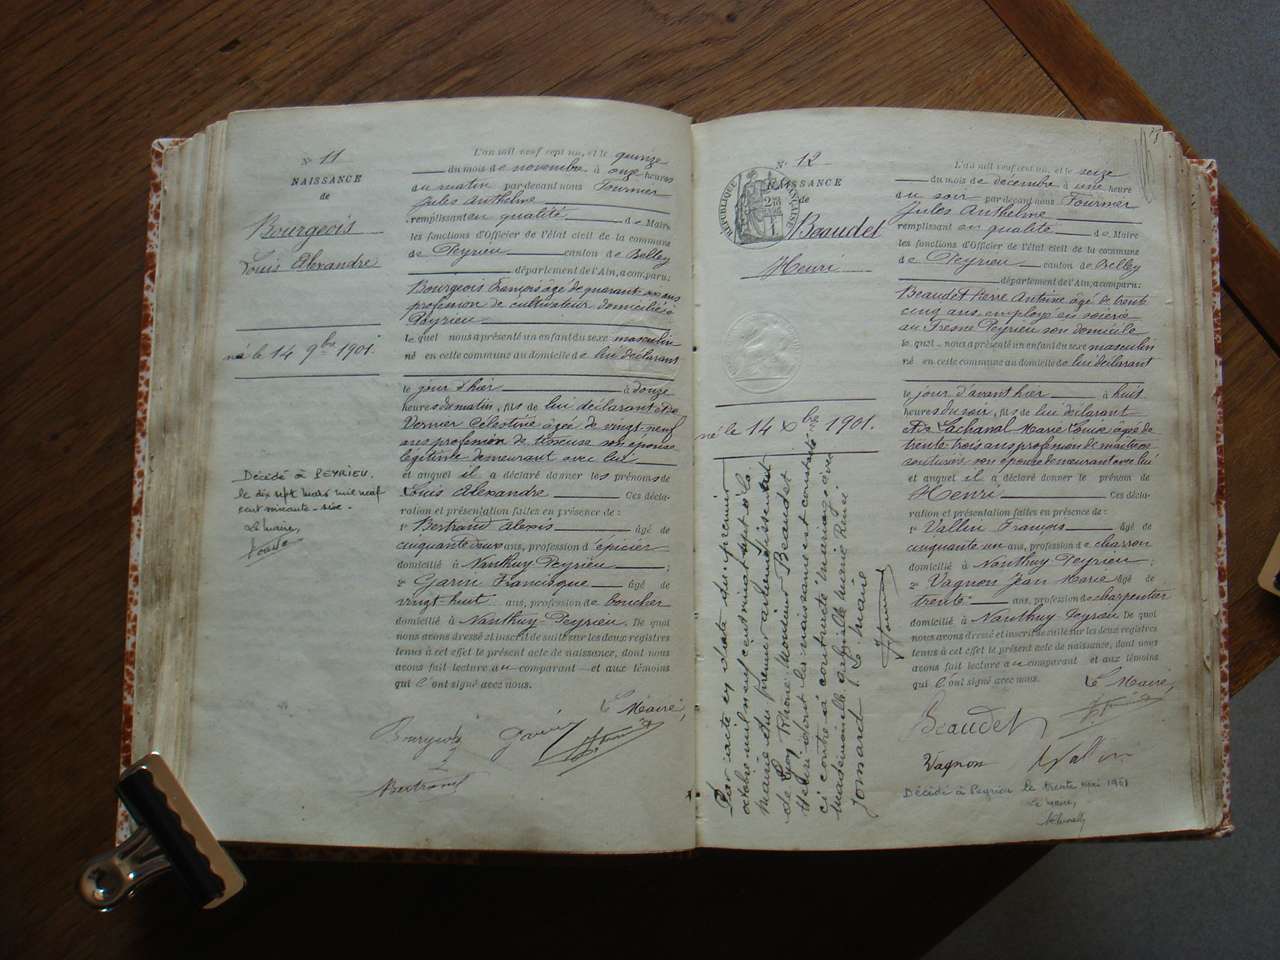 N° 11
NAISSANCE
de
Bourgeois
Louis Alexandre
né le 14 9bre 1901.
Décédé à PEYRIEU.
le dix sept mars mil neuf
cent soixante-six.
Le Maire,
L'an mil neuf cent un, et le quinze
du mois de novembre à onze heures
du matin par devant nous Fournier
Jules Anthelme
remplissant en qualité de Maire
les fonctions d'Officier de l'état civil de la commune
de Peyrieu canton de Belley
département de l'Ain, a comparu :
Bourgeois François âgé de quarante ans
profession de cultivateur domicilié à
Peyrieu
lequel nous a présenté un enfant du sexe masculin
né en cette commune au domicile de lui déclarant
le jour d'hier à douze
heures du matin, fils de lui déclarant et de
Vernier Célestine âgée de vingt neuf
ans profession de tisseuse son épouse
légitime demeurant avec lui
et auquel il a déclaré donner les prénoms de
Louis Alexandre Ces décla-
ration et présentation faites en présence de :
1° Bertrand Alexis âgé de
cinquante deux ans, profession d'épicier
domicilié à Nanthuy Peyrieu ;
2° Garin Francisque âgé de
vingt-huit ans, profession de boucher
domicilié à Nanthuy-Peyrieu. De quoi
nous avons dressé et inscrit de suite sur les deux registres
tenus à cet effet le présent acte de naissance, dont nous
avons fait lecture au comparant et aux témoins
qui l'ont signé avec nous.
Le Maire,
Bourgeois Garin
Bertrand
N° 12
NAISSANCE
de
RÉPUBLIQUE FRANÇAISE
Beaudet
Henri
né le 14 Xbre 1901.
Par acte en date du premier
octobre mil neuf cent vingt sept à la
mairie du premier arrondissement
de Lyon Rhône Monsieur Beaudet
Henri dont la naissance est constatée
ci contre a contracté mariage avec
mademoiselle Marie René
Jomard Le maire
L'an mil neuf cent un, et le seize
du mois de décembre à une heure
du soir par devant nous Fournier
Jules Anthelme
remplissant en qualité de Maire
les fonctions d'Officier de l'état civil de la commune
de Peyrieu canton de Belley
département de l'Ain, a comparu :
Beaudet Pierre Antoine âgé de trente
cinq ans employé en soierie
au Fresne Peyrieu son domicile
lequel nous a présenté un enfant du sexe masculin
né en cette commune au domicile de lui déclarant
le jour d'avant hier à huit
heures du soir, fils de lui déclarant
et de Lachanal Marie Louise âgée de
trente trois ans profession de maîtresse
couturière son épouse demeurant avec lui
et auquel il a déclaré donner le prénom de
Henri Ces décla-
ration et présentation faites en présence de :
1° Vallin François âgé de
cinquante un ans, profession de charron
domicilié à Nanthuy Peyrieu ;
2° Vagnon Jean Marie âgé de
trente ans, profession de charpentier
domicilié à Nanthuy Peyrieu De quoi
nous avons dressé et inscrit de suite sur les deux registres
tenus à cet effet le présent acte de naissance, dont nous
avons fait lecture au comparant et aux témoins
qui l'ont signé avec nous.
Le Maire,
Beaudet
Vagnon Vallin
Décédé à Peyrieu le trente mai 1961
Le Maire,